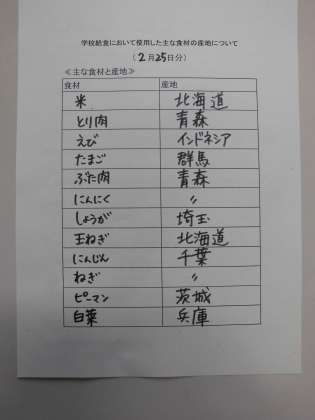 学校給食において使用した主な食材の産地について
(2月25日分)
≪主な食材と産地≫
食材 産地
米 北海道
とり肉 青森
えび インドネシア
たまご 群馬
ぶた肉 青森
にんにく 〃
しょうが 埼玉
玉ねぎ 北海道
にんじん 千葉
ねぎ 〃
ピーマン 茨城
白菜 兵庫